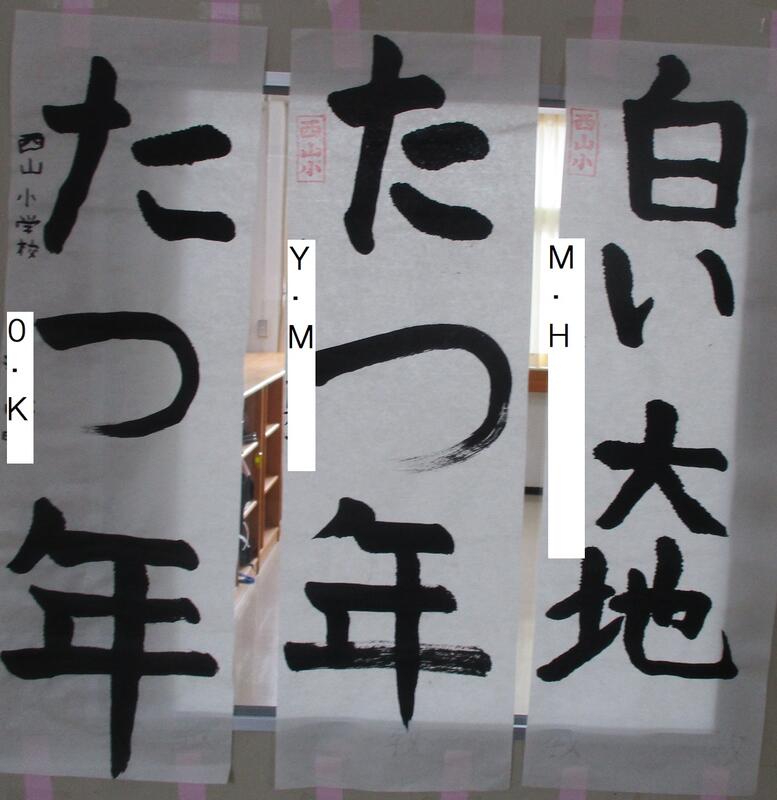 白い大地
西山小
M・H
たつ年
西山小
Y・M
たつ年
西山小学校
O・K